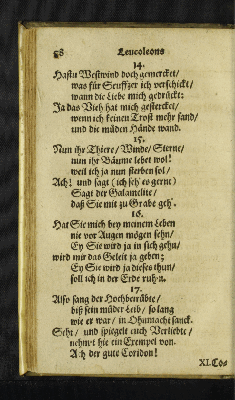 58 Leucoleons
14.
Hastu Westwind doch gemercket/
was für Seuffzer ich verschickt/
wann die Liebe mich gedrückt:
Ja das Vieh hat mich gestercket/
wenn ich keinen Trost mehr fand/
und die müden Hände wand.
15.
Nun ihr Thiere/ Winde/ Sterne/
nun ihr Bäume lebet wol!
weil ich ja nun sterben sol/
Ach! und sagt (ich seh' es gerne)
Sagt der Galamelite/
daß Sie mit zu Grabe geh'.
16.
Hat Sie mich bey meinem Leben
nie vor Augen mögen sehn/
Ey Sie wird ja in sich gehn/
wird mir das Geleit ja geben;
Ey Sie wird ja dieses thun/
soll ich in der Erde ruhn.
17.
Also sang der Hochbetrübte/
biß sein müder Leib/ so lang
wie er war/ in Ohnmacht sanck.
Seht/ und spiegelt euch Verliebte/
nehmt hie ein Exempel von.
Ach der gute Coridon!
XI. Co-